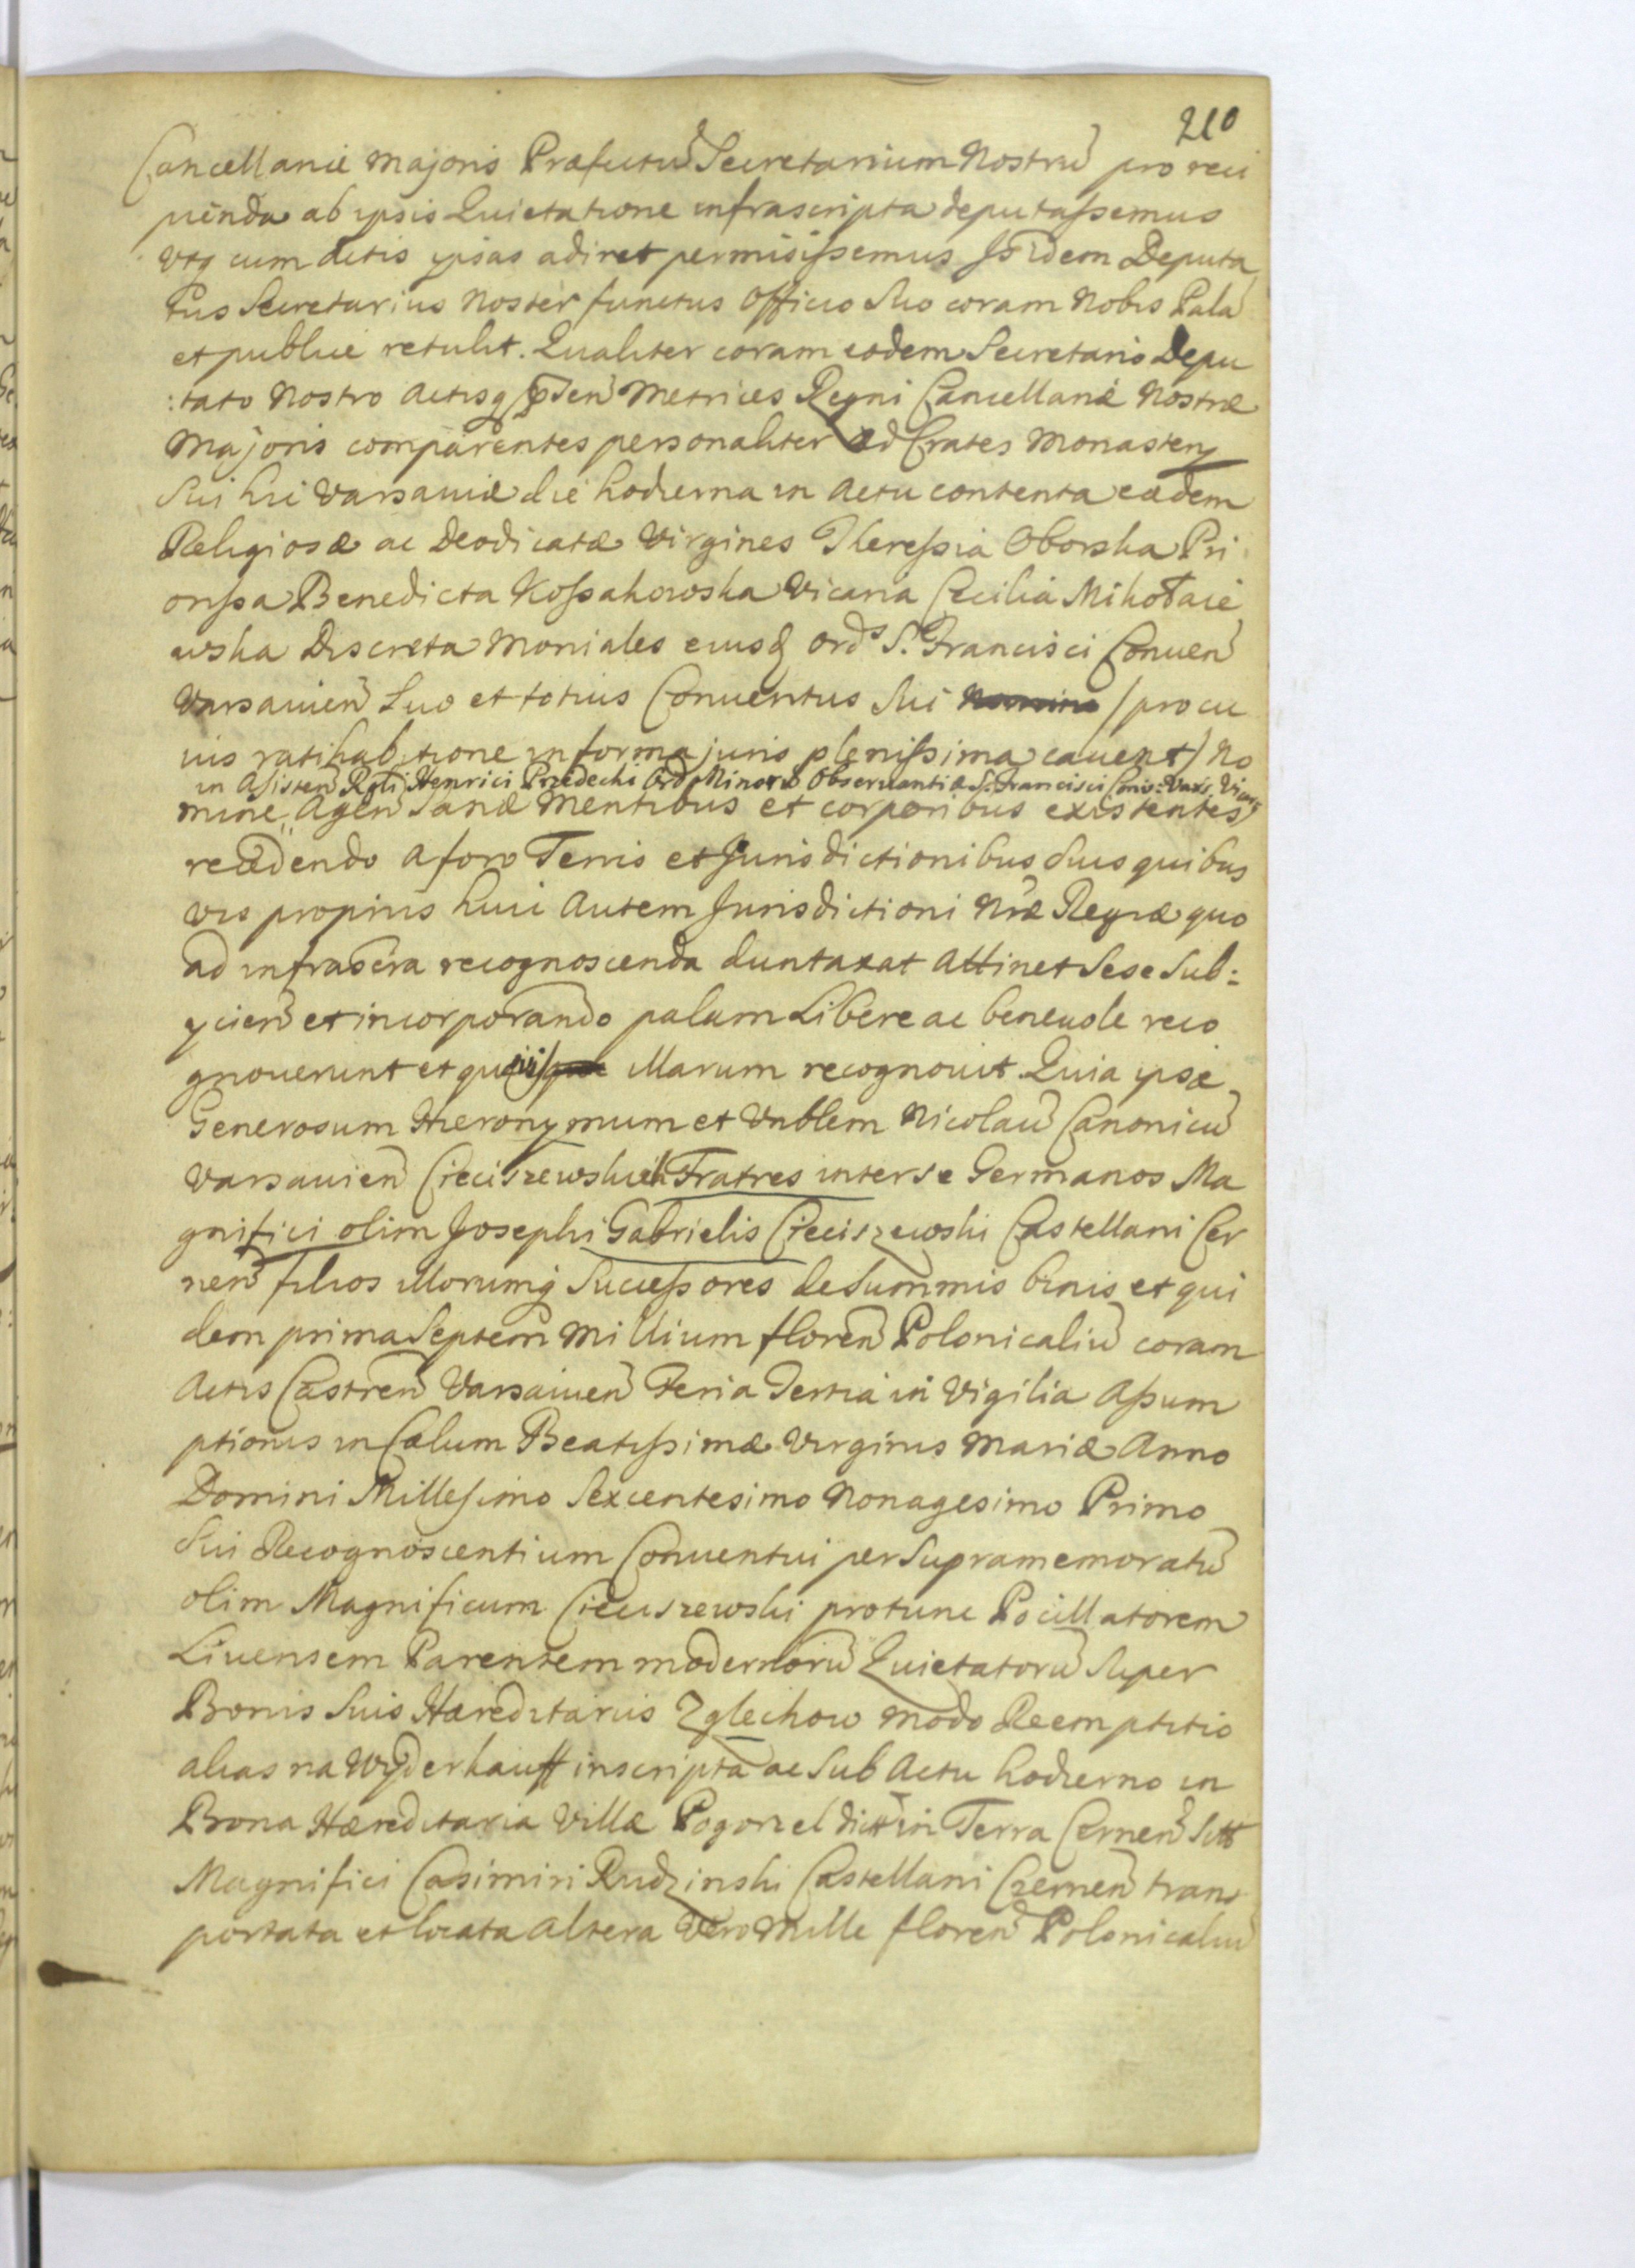 210
Cancellariæ Majoris Præfectū Secretarium Nostrū pro reci
pienda ab ipsis Quietatione infrascripta deputassemus
Utq cum Actis ipsas adiret permisissemus Is idem Deputa
tus Secretarius Noster functus Officio Suo coram Nobis Palā
et publice retulit. Qualiter coram eodem Secretario Depu
:tato Nostro Actisq pñtē Metrices Regni Cancellariæ Nostræ
Majoris comparentes personaliter ad Crates Monastery
Sui hic Varsaviæ die hodierna in Actu contenta eædem
Religiosæ ac Deodicatæ Virgines Theressia Oborska Pri
orissa Benedicta Kossakowska Vicaria Cæcilia Mikołaie
wska Discreta Moniales eiusq Ordˢ S. Francisci Conuen̄
Varsauien̄ Suo et totius Conuentus Sui Nomine /pro cu
ius ratihabitione in forma juris plenissima cauent/ No
in Asisten̄ Rgli Henrici Przedecki Ord Minorū Obseruantiæ S. Francisci Conv: Vars: Vicarij
mine,, Agen̄ Sanæ Mentibus et corporibus existentes
recedendo a foro Terris et Jurisdictionibus suis quibus
vis proprijs huic Autem Jurisdictioni Nræ Regiæ quo
ad infrascra recognoscenda duntaxat Attinet Sese Sub:
ycien̄ et incorporando palam Libere ac beneuole reco
gnouerunt et quævis illarum recognouit Quia ipsæ
Generosum Hieronymum et Vnblem Nicolaū Canonicū
Varsauien̄ Cieciszewskich Fratres inter se Germanos Ma
gnifici olim Josephi Gabrielis Cieciszewski Castellani Cer
nen̄ filios illorumq Successores de Summis binis et qui
dem prima Septem Millium floren̄ Polonicaliū coram
Actis Castren̄ Varsauien̄ Feria Tertia in Vigilia Assum
ptionis in Cælum Beatissimæ Virginis Mariæ Anno
Domini Millesimo Sexcentesimo Nonagesimo Primo
Sui Recognoscentium Conuentui per Supramemoratū
olim Magnificum Cieciszewski protunc Pocillatorem
Liuensem Parentem modernorū Quietatorū Super
Bonis Suis Hæreditariis Zglechow modo Reemptitio
alias na Wyderkauff inscripta ac Sub Actu hodierno in
Bona Hæreditaria Villæ Pogorzel dict in Terra Cernen̄ Sitt
Magnifici Casimiri Rudzinski Castellani Czernen̄ trans
portata et locata Altera vero Mille floren̄ Polonicaliū